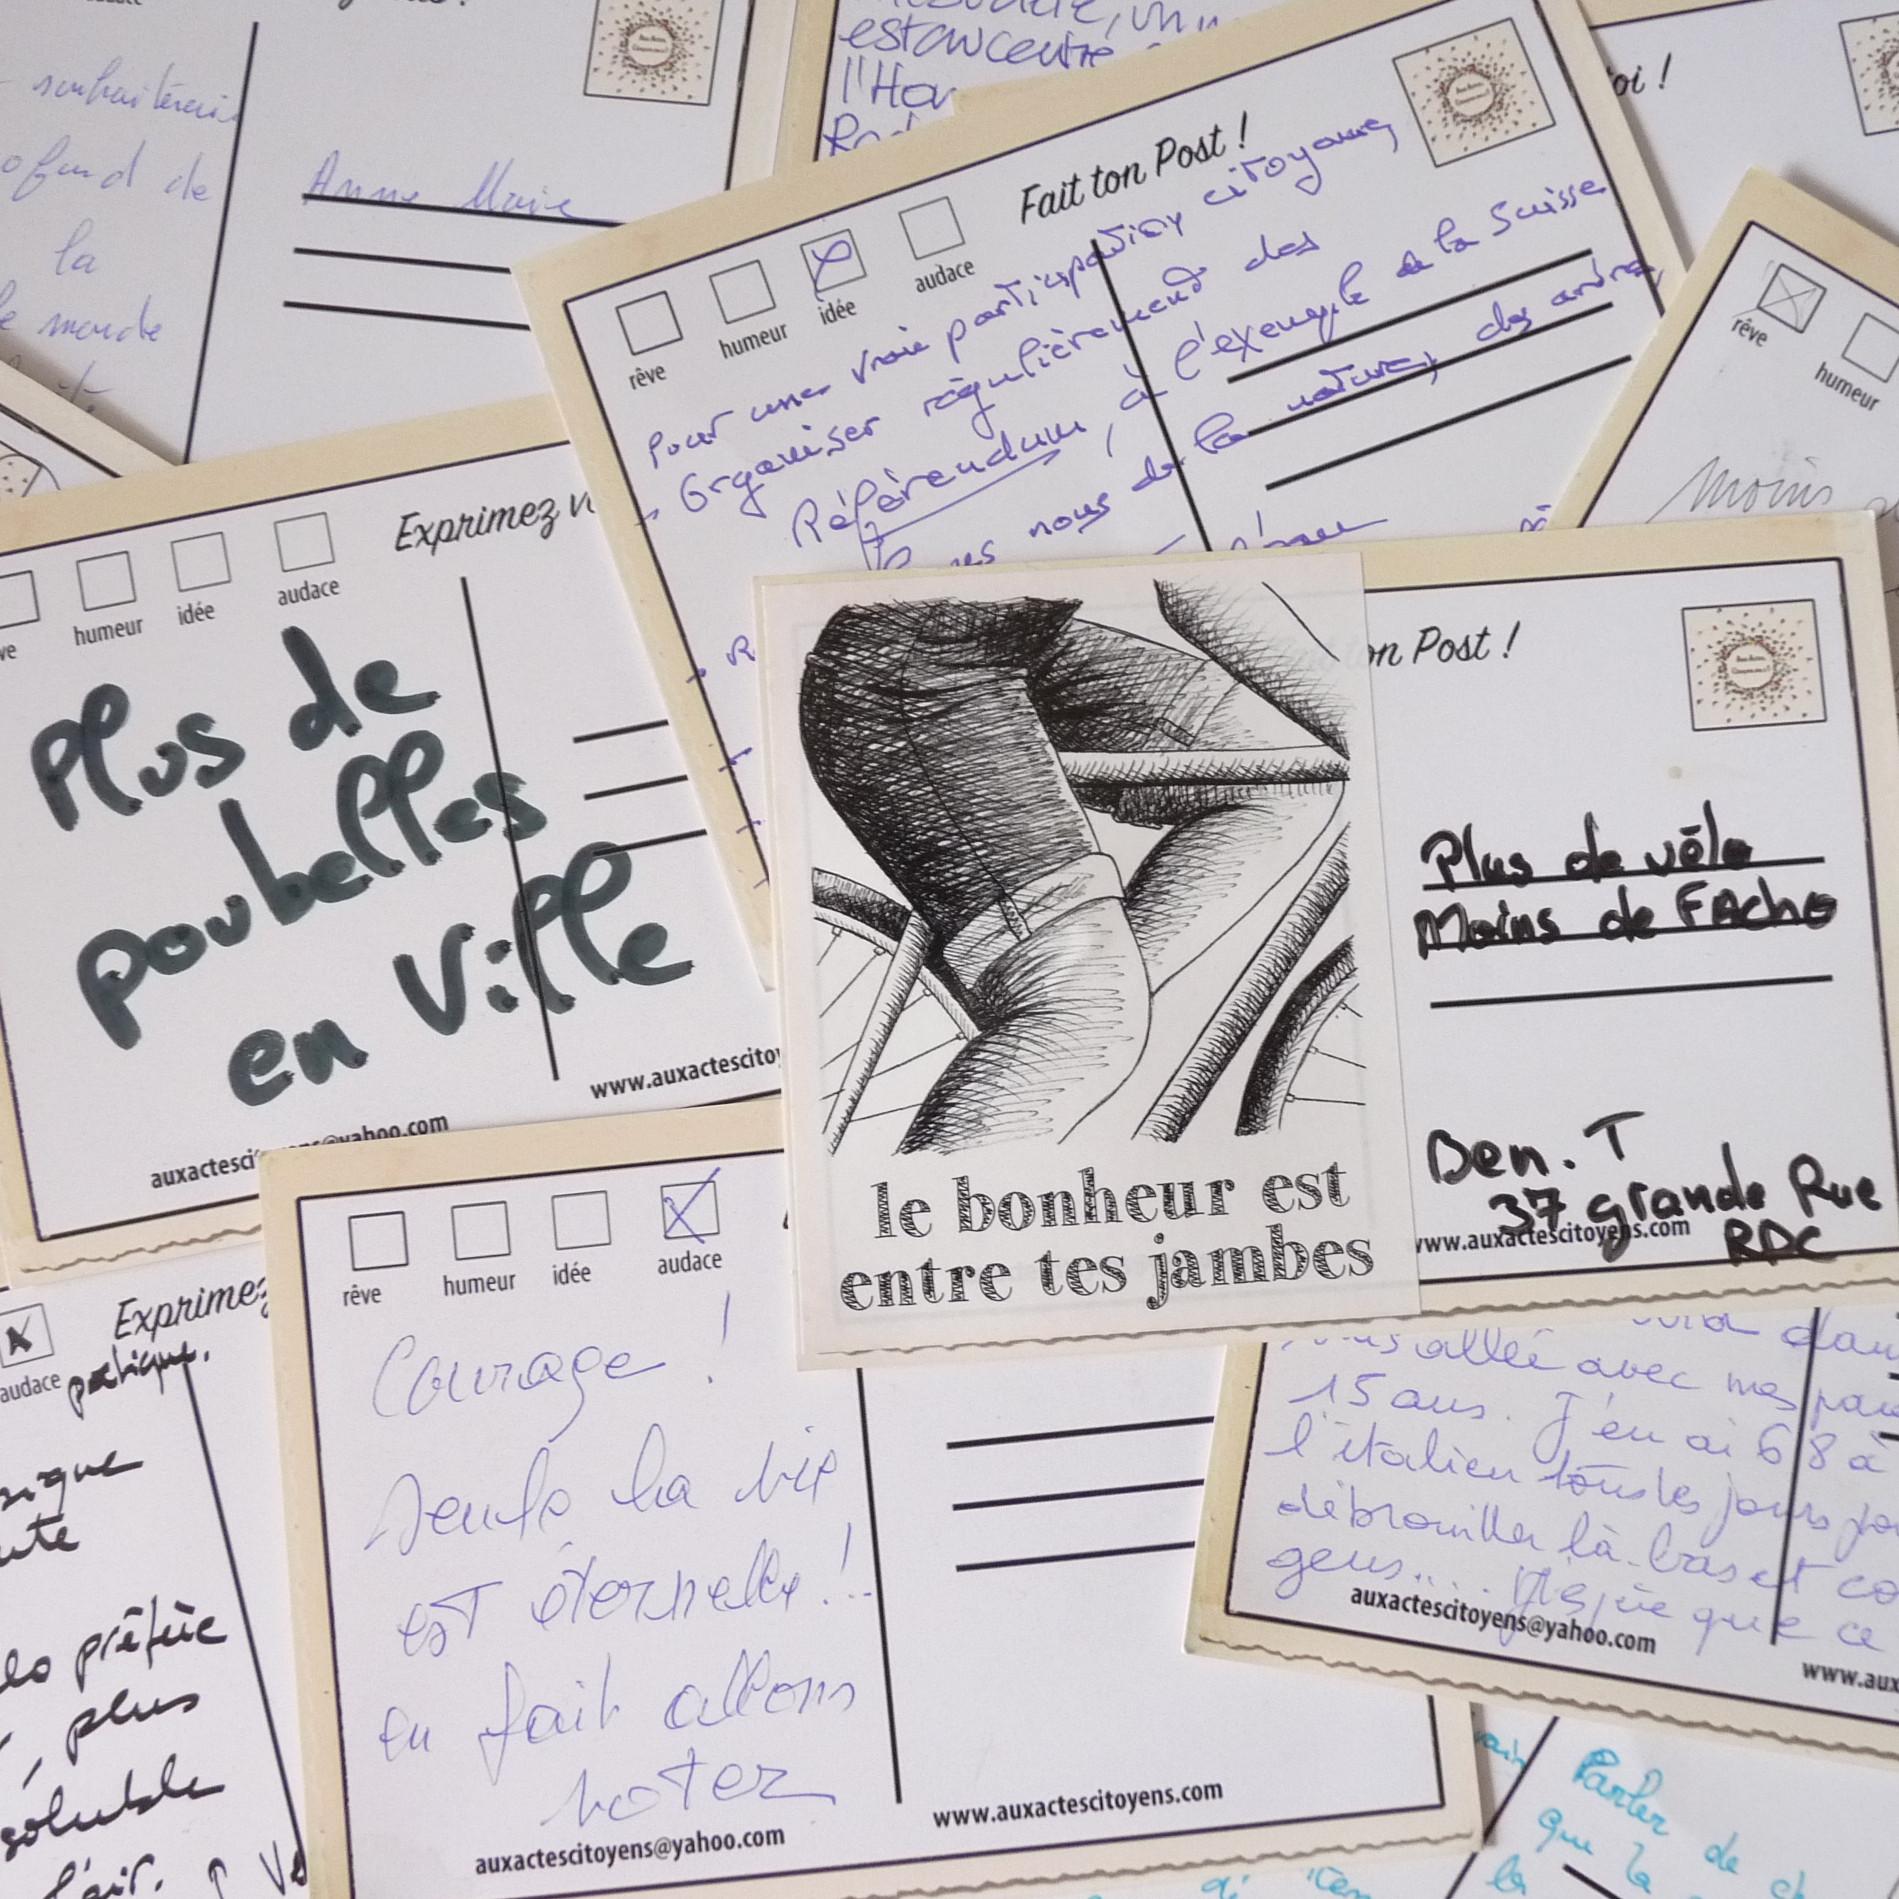 souhaiterais
de
la
monde
Anne Marie
est au centre
l'Ho
oi !
Fait ton Post !
rêve
humeur
idée
audace
Pour une vraie participation citoyenne,
Organiser régulièrement des
Référendum, à l'exemple de la Suisse
nous de la nature, des arbres,
rêve
humeur
Moins
humeur
idée
audace
Exprimez v
Plus de
poubelles
en Ville
auxactescitoyens@yahoo.com
www.auxactescitoy
le bonheur est
entre tes jambes
on Post !
Plus de vélo
Moins de FAcho
Ben. T
37 grande Rue
RDC
www.auxactescitoyens.com
audace
Exprimez
poétique.
préfère
plus
soluble
l'air.
rêve
humeur
idée
audace
Courage !
Seule la vie
est éternelle !..
en fait allons
voter
auxactescitoyens@yahoo.com
www.auxactescitoyens.com
allée avec mes
15 ans. J'en ai 68 à
l'italien tous les jours
débrouiller là-bas et co
gens.... J'espère que ce
auxactescitoyens@yahoo.com
www.aux
Parler de
que la
la